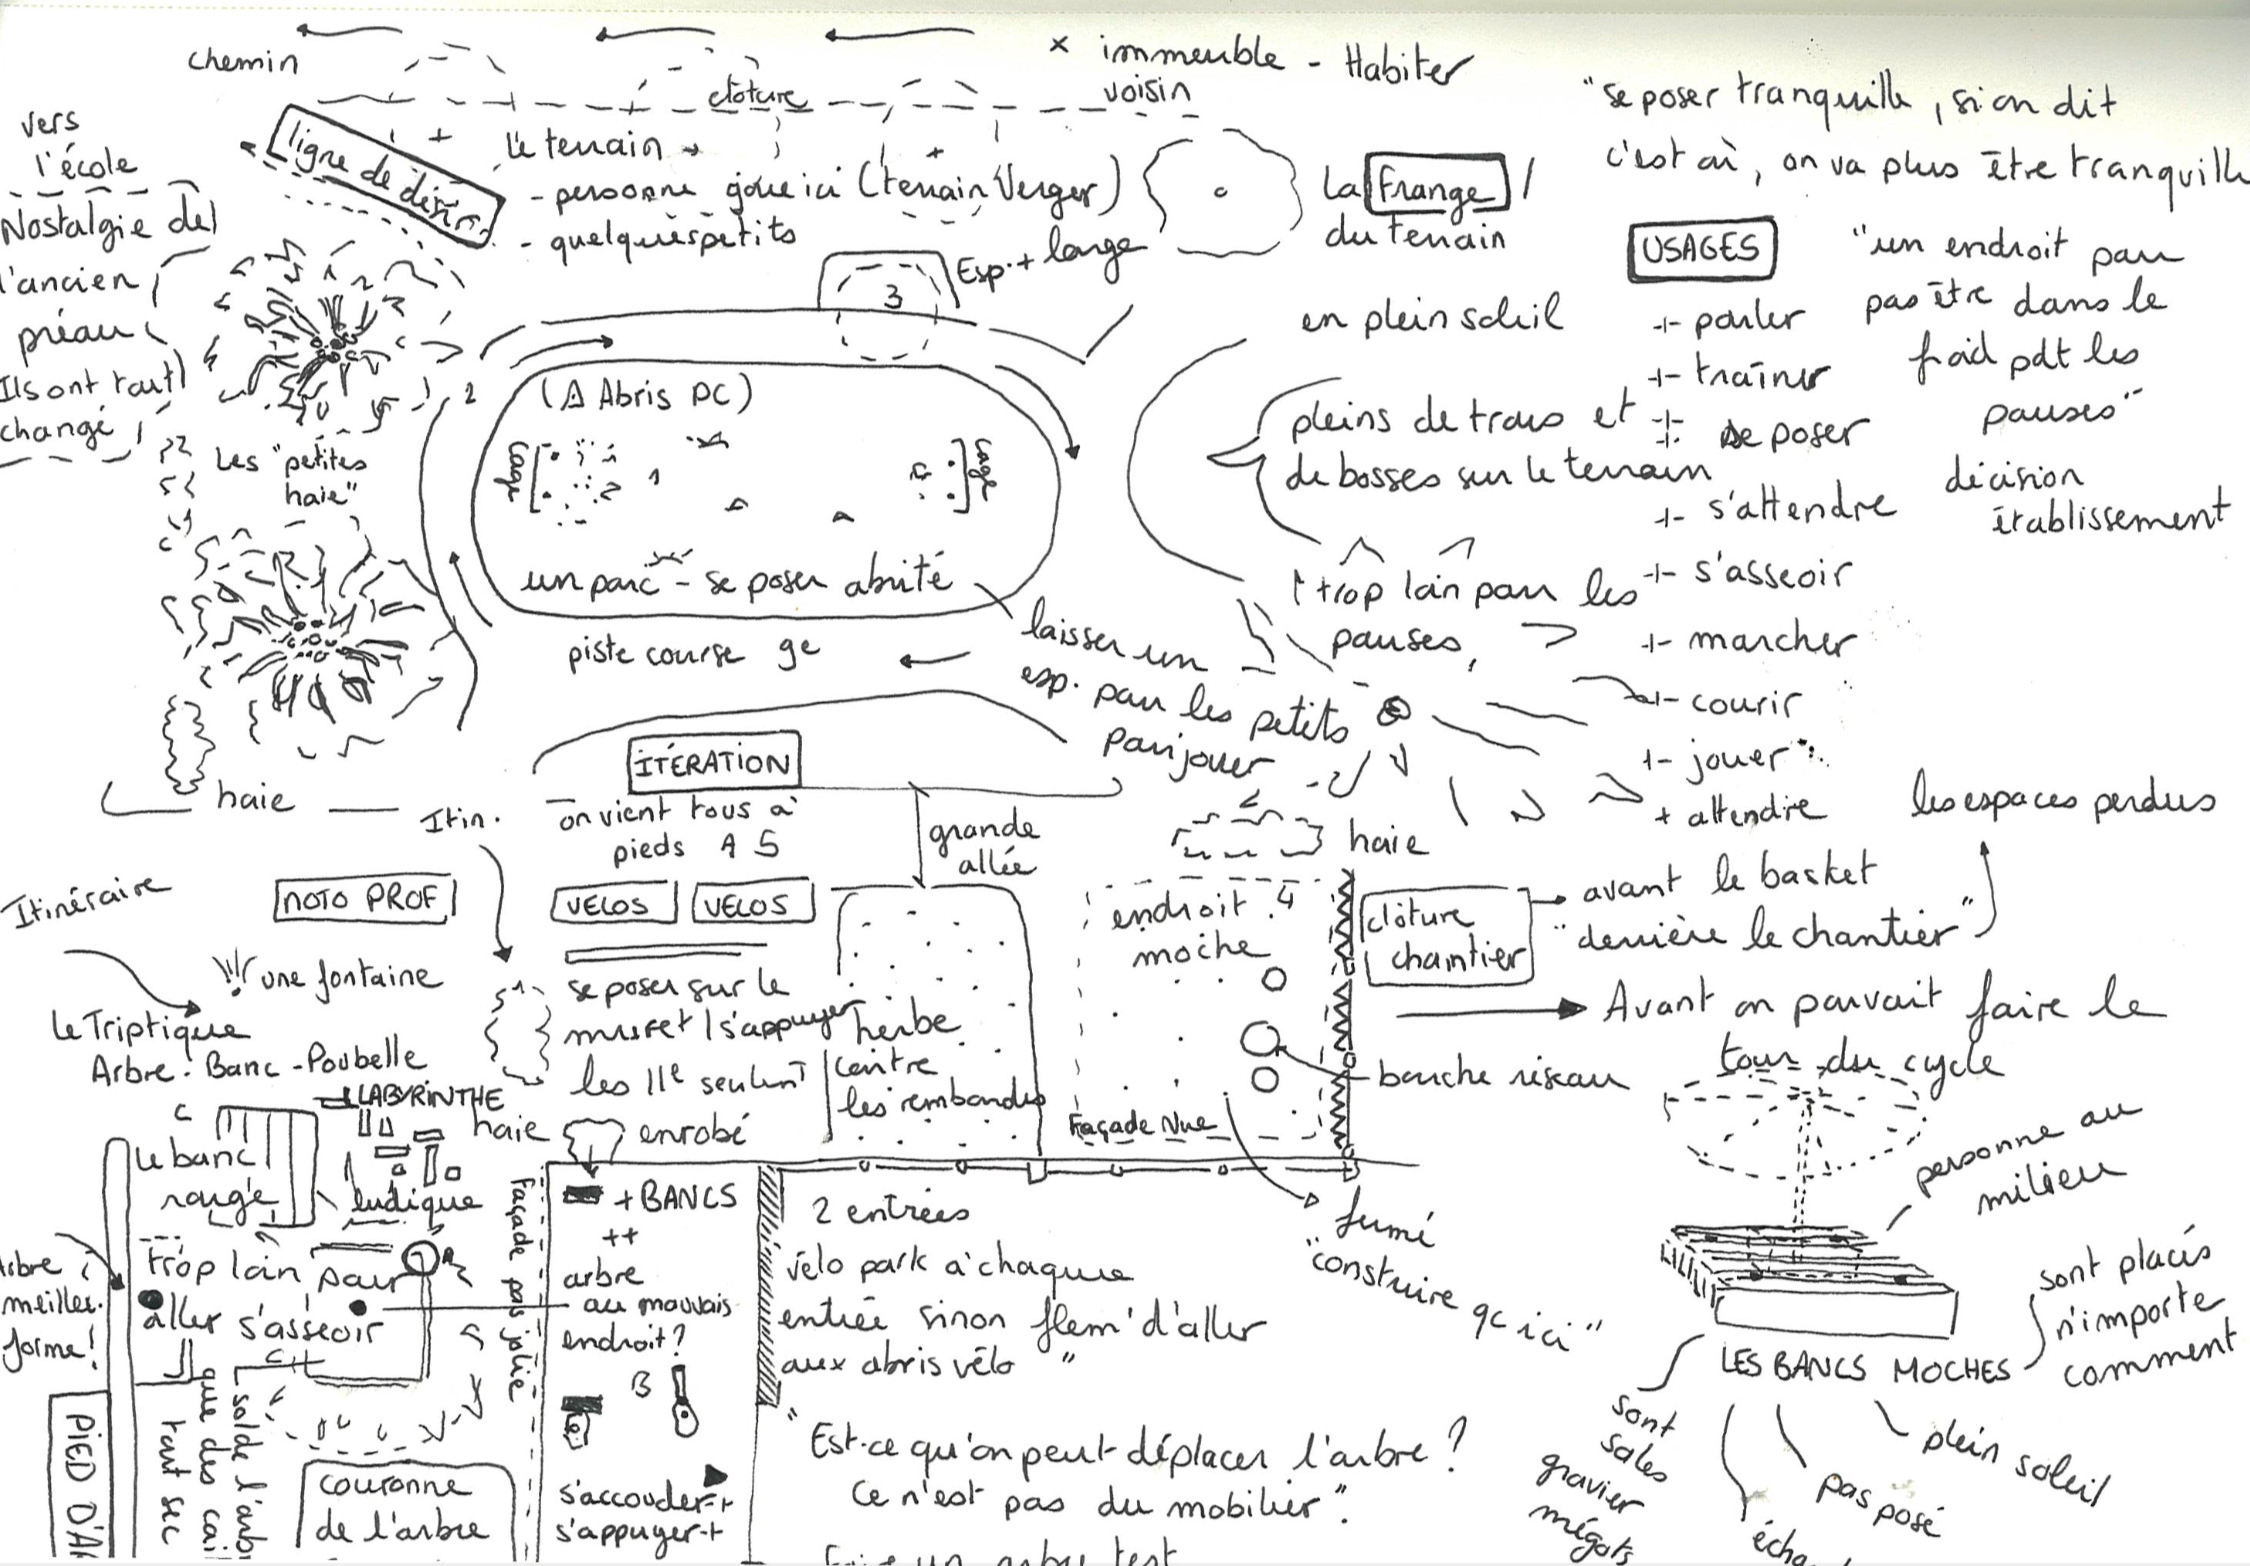 chemin
clôture
× immeuble - Habiter
voisin
vers
l'école
ligne de désir
Nostalgie de
l'ancien
préau
Ils ont tout
changé
le terrain
- personne joue ici (terrain Verger)
- quelques petits
Esp. + large
3
La Frange /
du terrain
"se poser tranquille, si on dit
c'est où, on va plus être tranquille
USAGES
+ parler
+ traîner
+ se poser
+ s'attendre
+ s'asseoir
+ marcher
+ courir
+ jouer
+ attendre
"un endroit pour
pas être dans le
froid pdt les
pauses"
décision
établissement
en plein soleil
pleins de trous et
de bosses sur le terrain
↑ trop loin pour les
pauses,
2
(A Abris PC)
cage
1
cage
un parc - se poser abrité
piste course
laisser un
esp. pour les petits
pour jouer
Les "petites
haie"
haie
Itin.
ITÉRATION
on vient tous à
pieds
grande
allée
haie
les espaces perdus
Itinéraire
MOTO PROF
VELOS
VELOS
endroit 4
moche
clôture
chantier
avant le basket
"derrière le chantier"
Avant on pouvait faire le
tour du cycle
bouche réseau
une fontaine
Le Triptique
Arbre. Banc - Poubelle
LABYRINTHE
ludique
se poser sur le
muret / s'appuyer
les 11e seulent
herbe
contre
les rembardes
haie
enrobé
Façade Nue
fumé
"construire qc ici"
Le banc
rouge
trop loin pour
aller s'asseoir
arbre
meiller.
forme!
Façade pas jolie
+ BANCS
++
arbre
au mauvais
endroit?
B
s'accouder +
s'appuyer +
2 entrées
vélo park à chaque
entrée sinon flem' d'aller
aux abris vélo "
"Est-ce qu'on peut déplacer l'arbre?
Ce n'est pas du mobilier".
Faire un arbre test
personne au
milieu
LES BANCS MOCHES
sont placés
n'importe
comment
sont
sales
gravier
mégots
pas posé
plein soleil
PIED D'A
tout sec
que des cai
couronne
de l'arbre